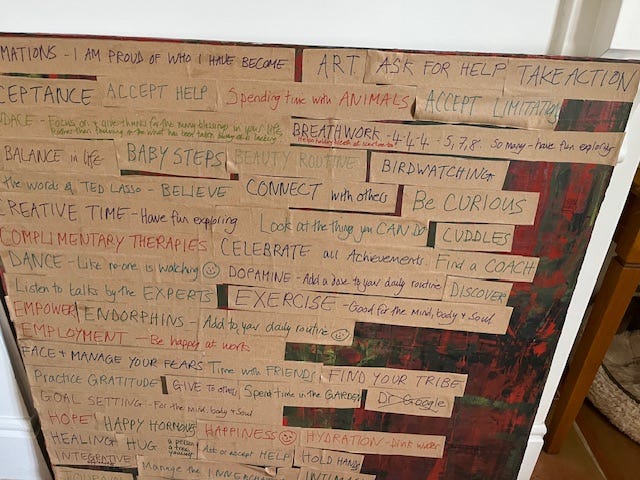 MATIONS - I AM PROUD OF WHO I HAVE BECOME ART ASK FOR HELP TAKE ACTION
CEPTANCE ACCEPT HELP Spending time with ANIMALS ACCEPT LIMITATIO
DACE - Focus on & give thanks for the many blessings in your life,
Rather than on what has been taken away or is lacking
BREATHWORK - 4-4-4 - 5,7,8. So many - have fun exploring
BALANCE in life BABY STEPS BEAUTY ROUTINE BIRDWATCHING
the words of TED LASSO - BELIEVE CONNECT with others Be CURIOUS
CREATIVE TIME - Have fun exploring Look at the things you CAN DO CUDDLES
COMPLIMENTARY THERAPIES CELEBRATE all Achievements Find a COACH
DANCE - Like no-one is watching DOPAMINE - Add a dose to your daily routine DISCOVER
Listen to talks by the EXPERTS EXERCISE - Good for the mind, body & Soul
EMPOWER ENDORPHINS - Add to your daily routine
EMPLOYMENT - Be happy at work
FACE & MANAGE YOUR FEARS Time with FRIENDS FIND YOUR TRIBE
Practice GRATITUDE GIVE to others Spent time in the GARDEN Dr Google
GOAL SETTING - For the mind, body & Soul
HOPE HAPPY HORMONES HAPPINESS HYDRATION - Drink water
HEALING HUG a person a tree, yourself Ask or accept HELP HOLD HANDS
INTEGRATIVE Manage the INNER